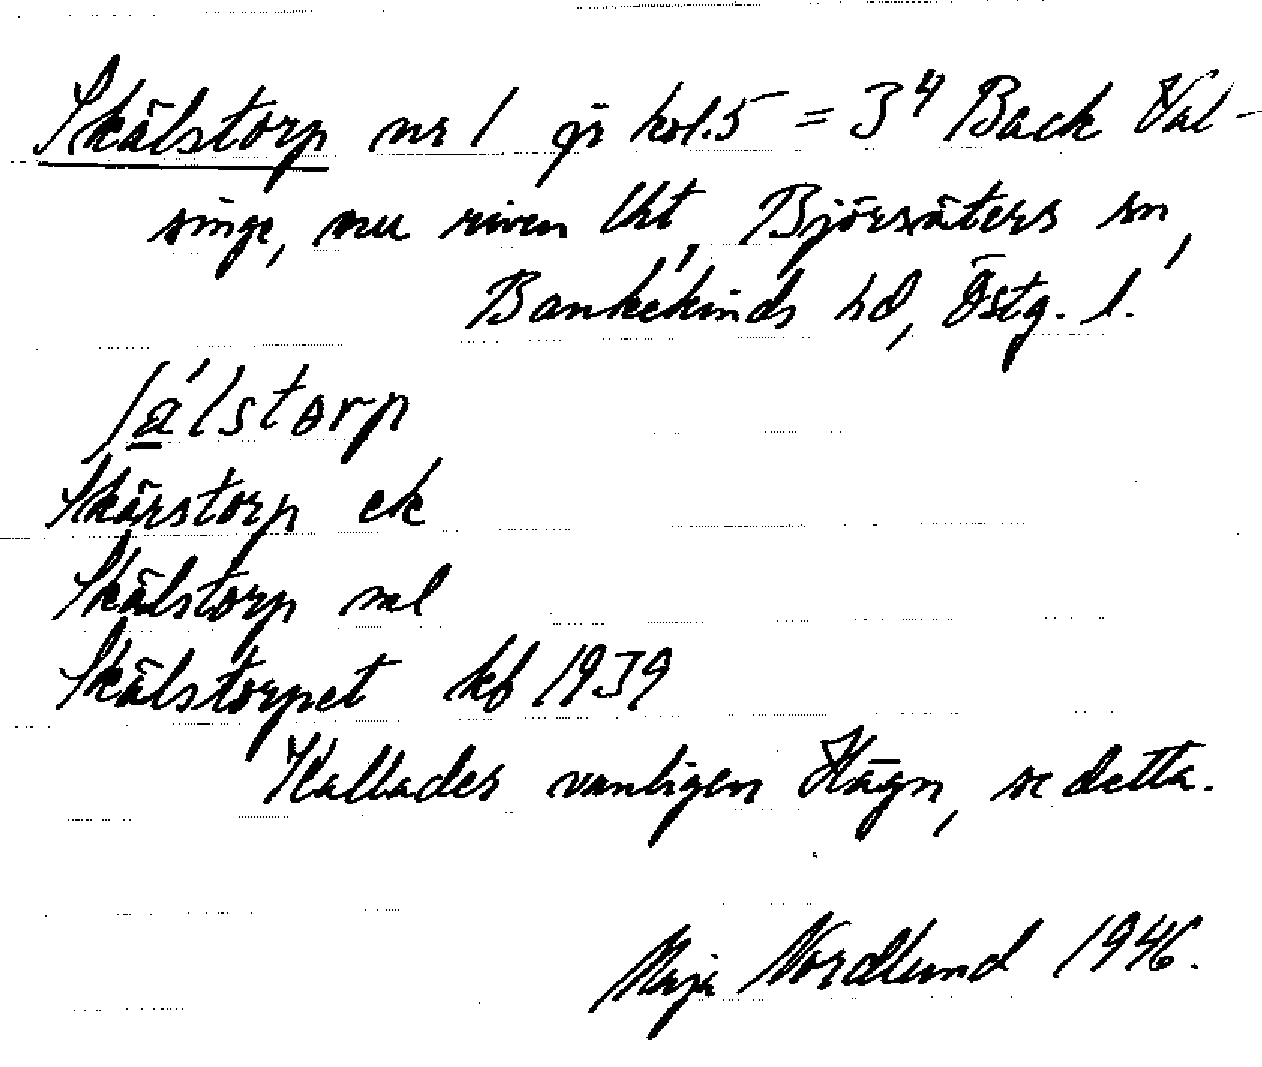 Skälstorp nr 1 jr kol.5 = 3⁴ Back Väl-
singe, nu riven lht, Björsäters sn,
Bankekinds hd, Östg. l.
ʃä́lstorp
Skärstorp ek
Skälstorp sml
Skälstorpet kb 1939
Kallades vanligen Hägn, se detta.
Maja Nordlund 1946.